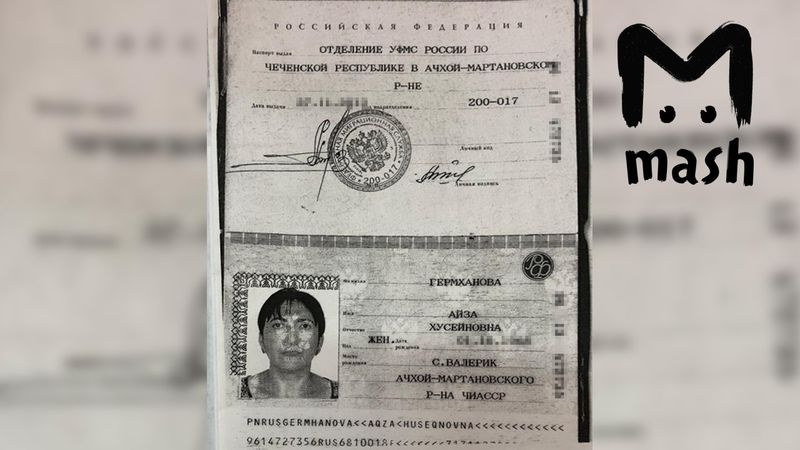 РОССИЙСКАЯ ФЕДЕРАЦИЯ
Паспорт выдан ОТДЕЛЕНИЕ УФМС РОССИИ ПО
ЧЕЧЕНСКОЙ РЕСПУБЛИКЕ В АЧХОЙ-МАРТАНОВСКОМ
Р-НЕ
Дата выдачи подразделения 200-017
Личный код
Личная подпись
200-017
mash
Фамилия ГЕРМХАНОВА
Имя АЙЗА
Отчество ХУСЕЙНОВНА
Пол ЖЕН. Дата рождения
Место рождения С.ВАЛЕРИК
АЧХОЙ-МАРТАНОВСКОГО
Р-НА ЧИАССР
PNRUSGERMHANOVA<<AQZA<HUSEQNOVNA<<<<<<<<<<<<